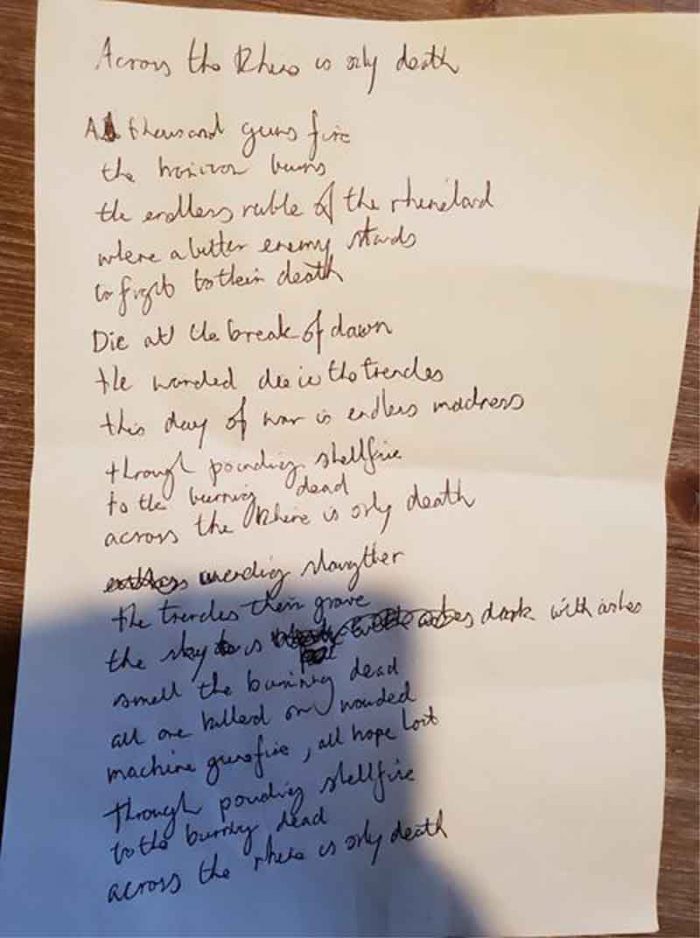 Across the Rhine is only death
A thousand guns fire
the horizon burns
the endless ruble of the rhineland
where a bitter enemy stands
to fight to their death
Die at the break of dawn
the wounded die in the trenches
this day of war is endless madness
through pounding shellfire
to the burning dead
across the Rhine is only death
endless unending slaughter
the trenches their grave
the sky is dark with ashes
smell the burning dead
all are killed or wounded
machine gunsfire, all hope lost
through pounding shellfire
to the burning dead
across the rhine is only death